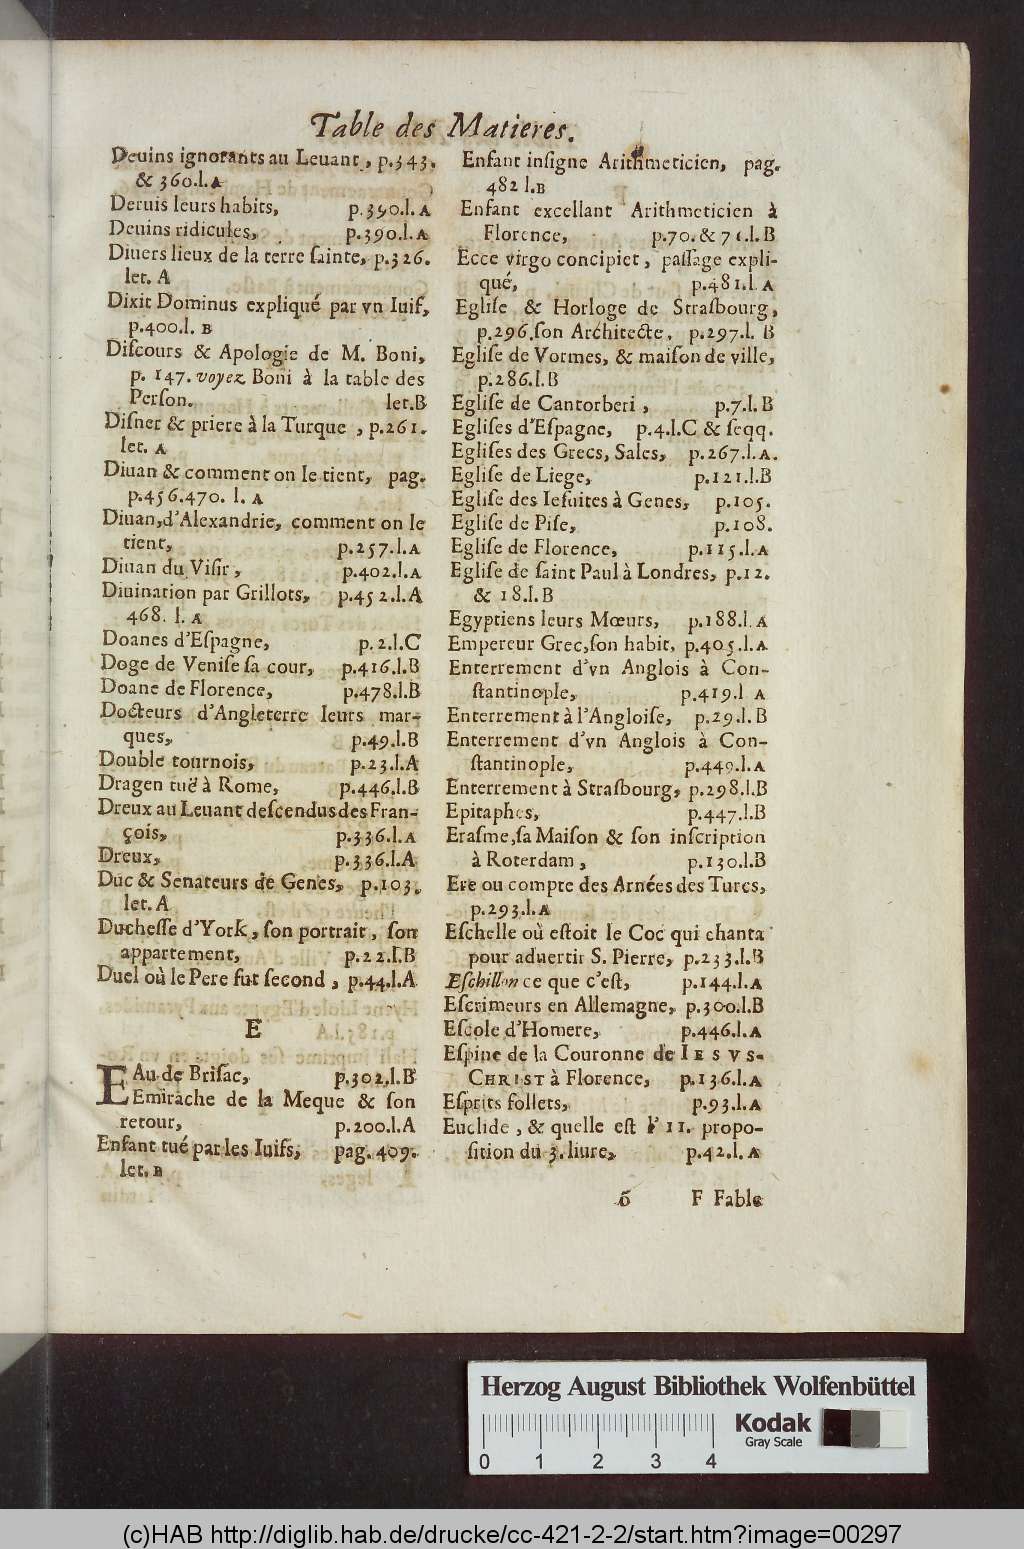 Table des Matieres.
Deuins ignorants au Leuant, p.343.
& 360.l.A
Deruis leurs habits, p.390.l.A
Deuins ridicules, p.390.l.A
Diuers lieux de la terre ſainte, p.326.
let. A
Dixit Dominus expliqué par vn Iuif,
p.400.l. B
Diſcours & Apologie de M. Boni,
p. 147. voyez Boni à la table des
Perſon. let.B
Diſner & priere à la Turque, p.261.
let. A
Diuan & comment on le tient, pag.
p.456.470. l. A
Diuan, d'Alexandrie, comment on le
tient, p.257.l.A
Diuan du Viſir, p.402.l.A
Diuination par Grillots, p.452.l.A
468. l. A
Doanes d'Eſpagne, p.2.l.C
Doge de Veniſe ſa cour, p.416.l.B
Doane de Florence, p.478.l.B
Docteurs d'Angleterre leurs mar-
ques, p.49.l.B
Double tournois, p.23.l.A
Dragen tuë à Rome, p.446.l.B
Dreux au Leuant deſcendus des Fran-
çois, p.336.l.A
Dreux, p.336.l.A
Duc & Senateurs de Genes, p.103.
let. A
Ducheſſe d'York, ſon portrait, ſon
appartement, p.22.l.B
Duel où le Pere fut ſecond, p.44.l.A
E
EAu de Briſac, p.302.l.B
Emirache de la Meque & ſon
retour, p.200.l.A
Enfant tué par les Iuifs, pag.409.
let. B
Enfant inſigne Arithmeticien, pag.
482 l.B
Enfant excellant Arithmeticien à
Florence, p.70. & 71.l.B
Ecce virgo concipiet, paſſage expli-
qué, p.481.l.A
Egliſe & Horloge de Straſbourg,
p.296.ſon Architecte, p.297.l. B
Egliſe de Vormes, & maiſon de ville,
p.286.l.B
Egliſe de Cantorberi, p.7.l.B
Egliſes d'Eſpagne, p.4.l.C & ſeqq.
Egliſes des Grecs, Sales, p.267.l.A.
Egliſe de Liege, p.121.l.B
Egliſe des Ieſuites à Genes, p.105.
Egliſe de Piſe, p.108.
Egliſe de Florence, p.115.l.A
Egliſe de ſaint Paul à Londres, p.12.
& 18.l.B
Egyptiens leurs Mœurs, p.188.l.A
Empereur Grec, ſon habit, p.405.l.A
Enterrement d'vn Anglois à Con-
ſtantinople, p.419.l A
Enterrement à l'Angloiſe, p.29.l.B
Enterrement d'vn Anglois à Con-
ſtantinople, p.449.l.A
Enterrement à Straſbourg, p.298.l.B
Epitaphes, p.447.l.B
Eraſme, ſa Maiſon & ſon inſcription
à Roterdam, p.130.l.B
Ere ou compte des Arnées des Turcs,
p.293.l.A
Eſchelle où eſtoit le Coc qui chanta
pour aduertir S. Pierre, p.233.l.B
Eſchillon ce que c'eſt, p.144.l.A
Eſcrimeurs en Allemagne, p.300.l.B
Eſcole d'Homere, p.446.l.A
Eſpine de la Couronne de IESVS-
CHRIST à Florence, p.136.l.A
Eſprits follets, p.93.l.A
Euclide, & quelle eſt l'11. propo-
ſition du 3. liure, p.42.l.A
õ F Fable
Herzog August Bibliothek Wolfenbüttel
Kodak
Gray Scale
0 1 2 3 4
(c)HAB http://diglib.hab.de/drucke/cc-421-2-2/start.htm?image=00297